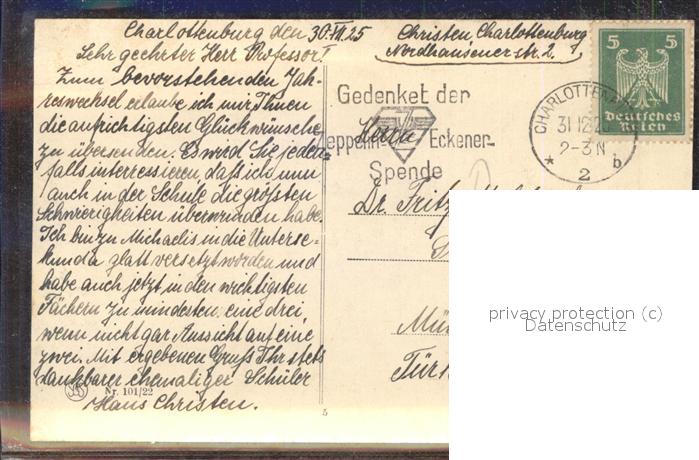 Charlottenburg den 30.XII.25
Sehr geehrter Herr Professor!
Zum bevorstehenden Jah-
reswechsel erlaube ich mir Ihnen
die aufrichtigsten Glückwünsche
zu übersenden. Es wird Sie jeden-
falls interressieren, daß ich nun
auch in der Schule die größten
Schwierigkeiten überwunden habe.
Ich bin zu Michaelis in die Unterse-
kunda glatt versetzt worden und
habe auch jetzt in den wichtigsten
Fächern zu mindesten eine drei,
wenn nicht gar Aussicht auf eine
zwei. Mit ergebenen Gruß Ihr stets
dankbarer ehemaliger Schüler
Hans Christen.
Nr. 101/22
5
Christen Charlottenburg
Nordhausener-str. 2.
Gedenket der
Zeppelin Eckener-
Spende
CHARLOTTENB
31.12.25
2-3 N
* 2 b
5 5
Deutsches
Reich
Dr. Fritz
Mü
Fürst
privacy protection (c)
Datenschutz